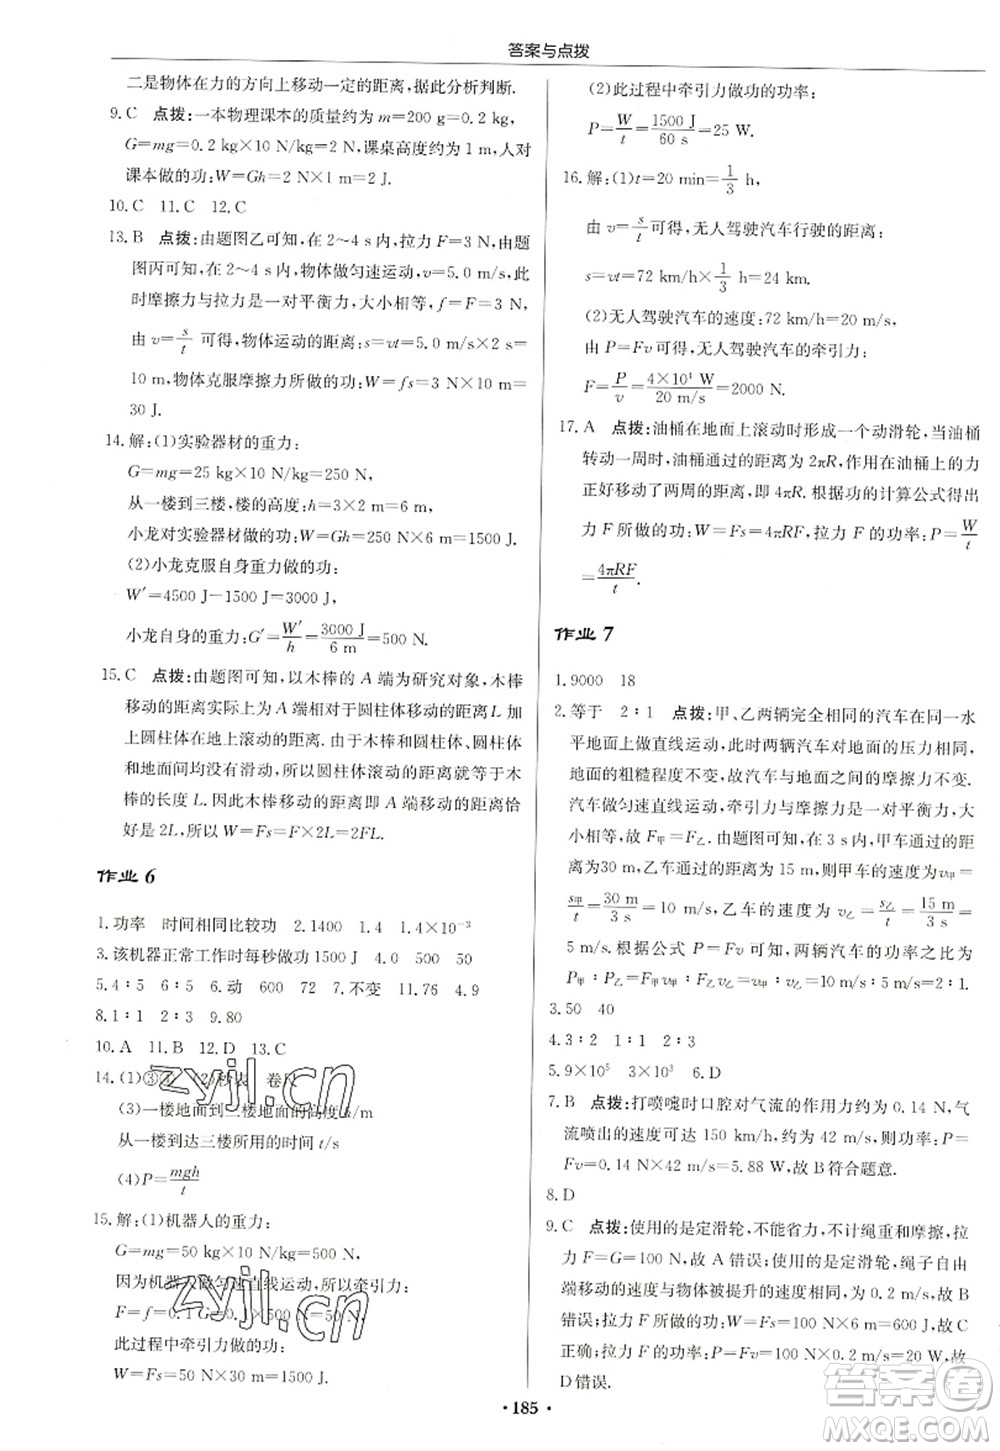 答案与点拨
二是物体在力的方向上移动一定的距离,据此分析判断.
9. C 点拨:一本物理课本的质量约为 m=200 g=0.2 kg,
G=mg=0.2 kg×10 N/kg=2 N,课桌高度约为 1 m,人对
课本做的功:W=Gh=2 N×1 m=2 J.
10. C 11. C 12. C
13. B 点拨:由题图乙可知,在 2~4 s 内,拉力 F=3 N,由题
图丙可知,在 2~4 s 内,物体做匀速运动,v=5.0 m/s,此
时摩擦力与拉力是一对平衡力,大小相等,f=F=3 N,
由 v=s/t 可得,物体运动的距离:s=vt=5.0 m/s×2 s=
10 m,物体克服摩擦力所做的功:W=fs=3 N×10 m=
30 J.
14. 解:(1)实验器材的重力:
G=mg=25 kg×10 N/kg=250 N,
从一楼到三楼,楼的高度:h=3×2 m=6 m,
小龙对实验器材做的功:W=Gh=250 N×6 m=1500 J.
(2)小龙克服自身重力做的功:
W′=4500 J-1500 J=3000 J,
小龙自身的重力:G′=W′/h=3000 J/6 m=500 N.
15. C 点拨:由题图可知,以木棒的 A 端为研究对象,木棒
移动的距离实际上为 A 端相对于圆柱体移动的距离 L 加
上圆柱体在地上滚动的距离. 由于木棒和圆柱体、圆柱体
和地面间均没有滑动,所以圆柱体滚动的距离即等于木
棒的长度 L. 因此木棒移动的距离即 A 端移动的距离恰
好是 2L,所以 W=Fs=F×2L=2FL.
作业 6
1. 功率 时间相同比较功 2. 1400 1.4 1.4×10⁻³
3. 该机器正常工作时每秒做功 1500 J 4. 0 500 50
5. 4∶5 6∶5 6. 动 600 72 7. 不变 4 4.9
8. 1∶1 2∶3 9. 80
10. A 11. B 12. D 13. C
14. (1)③① (2)秒表 卷尺
(3)一楼地面到三楼地面的高度h/m
从一楼到达三楼所用的时间 t/s
(4)P=mgh/t
15. 解:(1)机器人的重力:
G=mg=50 kg×10 N/kg=500 N,
因为机器人做匀速直线运动,所以牵引力:
F=f=0.1G=0.1×500 N=50 N,
此过程中牵引力做的功:
W=Fs=50 N×30 m=1500 J.
(2)此过程中牵引力做功的功率:
P=W/t=1500 J/60 s=25 W.
16. 解:(1)t=20 min=1/3 h,
由 v=s/t 可得,无人驾驶汽车行驶的距离:
s=vt=72 km/h×1/3 h=24 km.
(2)无人驾驶汽车的速度:72 km/h=20 m/s,
由 P=Fv 可得,无人驾驶汽车的牵引力:
F=P/v=4×10⁴ W/20 m/s=2000 N.
17. A 点拨:油桶在地面上滚动时形成一个动滑轮,当油桶
转动一周时,油桶通过的距离为 2πR,作用在油桶上的力
正好移动了两周的距离,即 4πR. 根据功的计算公式得出
力 F 所做的功:W=Fs=4πRF,拉力 F 的功率:P=W/t
=4πRF/t.
作业 7
1. 9000 18
2. 等于 2∶1 点拨:甲、乙两辆完全相同的汽车在同一水
平地面上做直线运动,此时两辆汽车对地面的压力相同,
地面的粗糙程度不变,故汽车与地面的摩擦力不变.
汽车做匀速直线运动,牵引力与摩擦力是一对平衡力,大
小相等,故 F甲=F乙. 由题图可知,在 3 s 内,甲车通过的距
离为 30 m,乙车通过的距离为 15 m,则甲车的速度为v甲=
s甲/t=30 m/3 s=10 m/s,乙车的速度为 v乙=s乙/t=15 m/3 s=
5 m/s. 根据公式 P=Fv 可知,两辆汽车的功率之比为
P甲∶P乙=F甲v甲∶F乙v乙=v甲∶v乙=10 m/s∶5 m/s=2∶1.
3. 50 40
4. 3∶2 1∶1 2∶3
5. 9×10⁵ 3×10³ 6. D
7. B 点拨:打喷嚏时口腔对气流的作用力约为 0.14 N,气
流喷出的速度可达 150 km/h,约为 42 m/s,则功率:P=
Fv=0.14 N×42 m/s=5.88 W,故 B 符合题意.
8. D
9. C 点拨:使用的是定滑轮,不能省力,不计绳重和摩擦,拉
力 F=G=100 N,故 A 错误;使用的是定滑轮,绳子自由
端移动的速度与物体被提升的速度相等,为 0.2 m/s,故 B
错误;拉力 F 所做的功:W=Fs=100 N×1 m=100 J,故 C
正确;拉力 F 的功率:P=Fv=100 N×0.2 m/s=20 W,故
D 错误.
·185·
zyjl.cn
zyjl.cn
答案圈
MXQE.COM